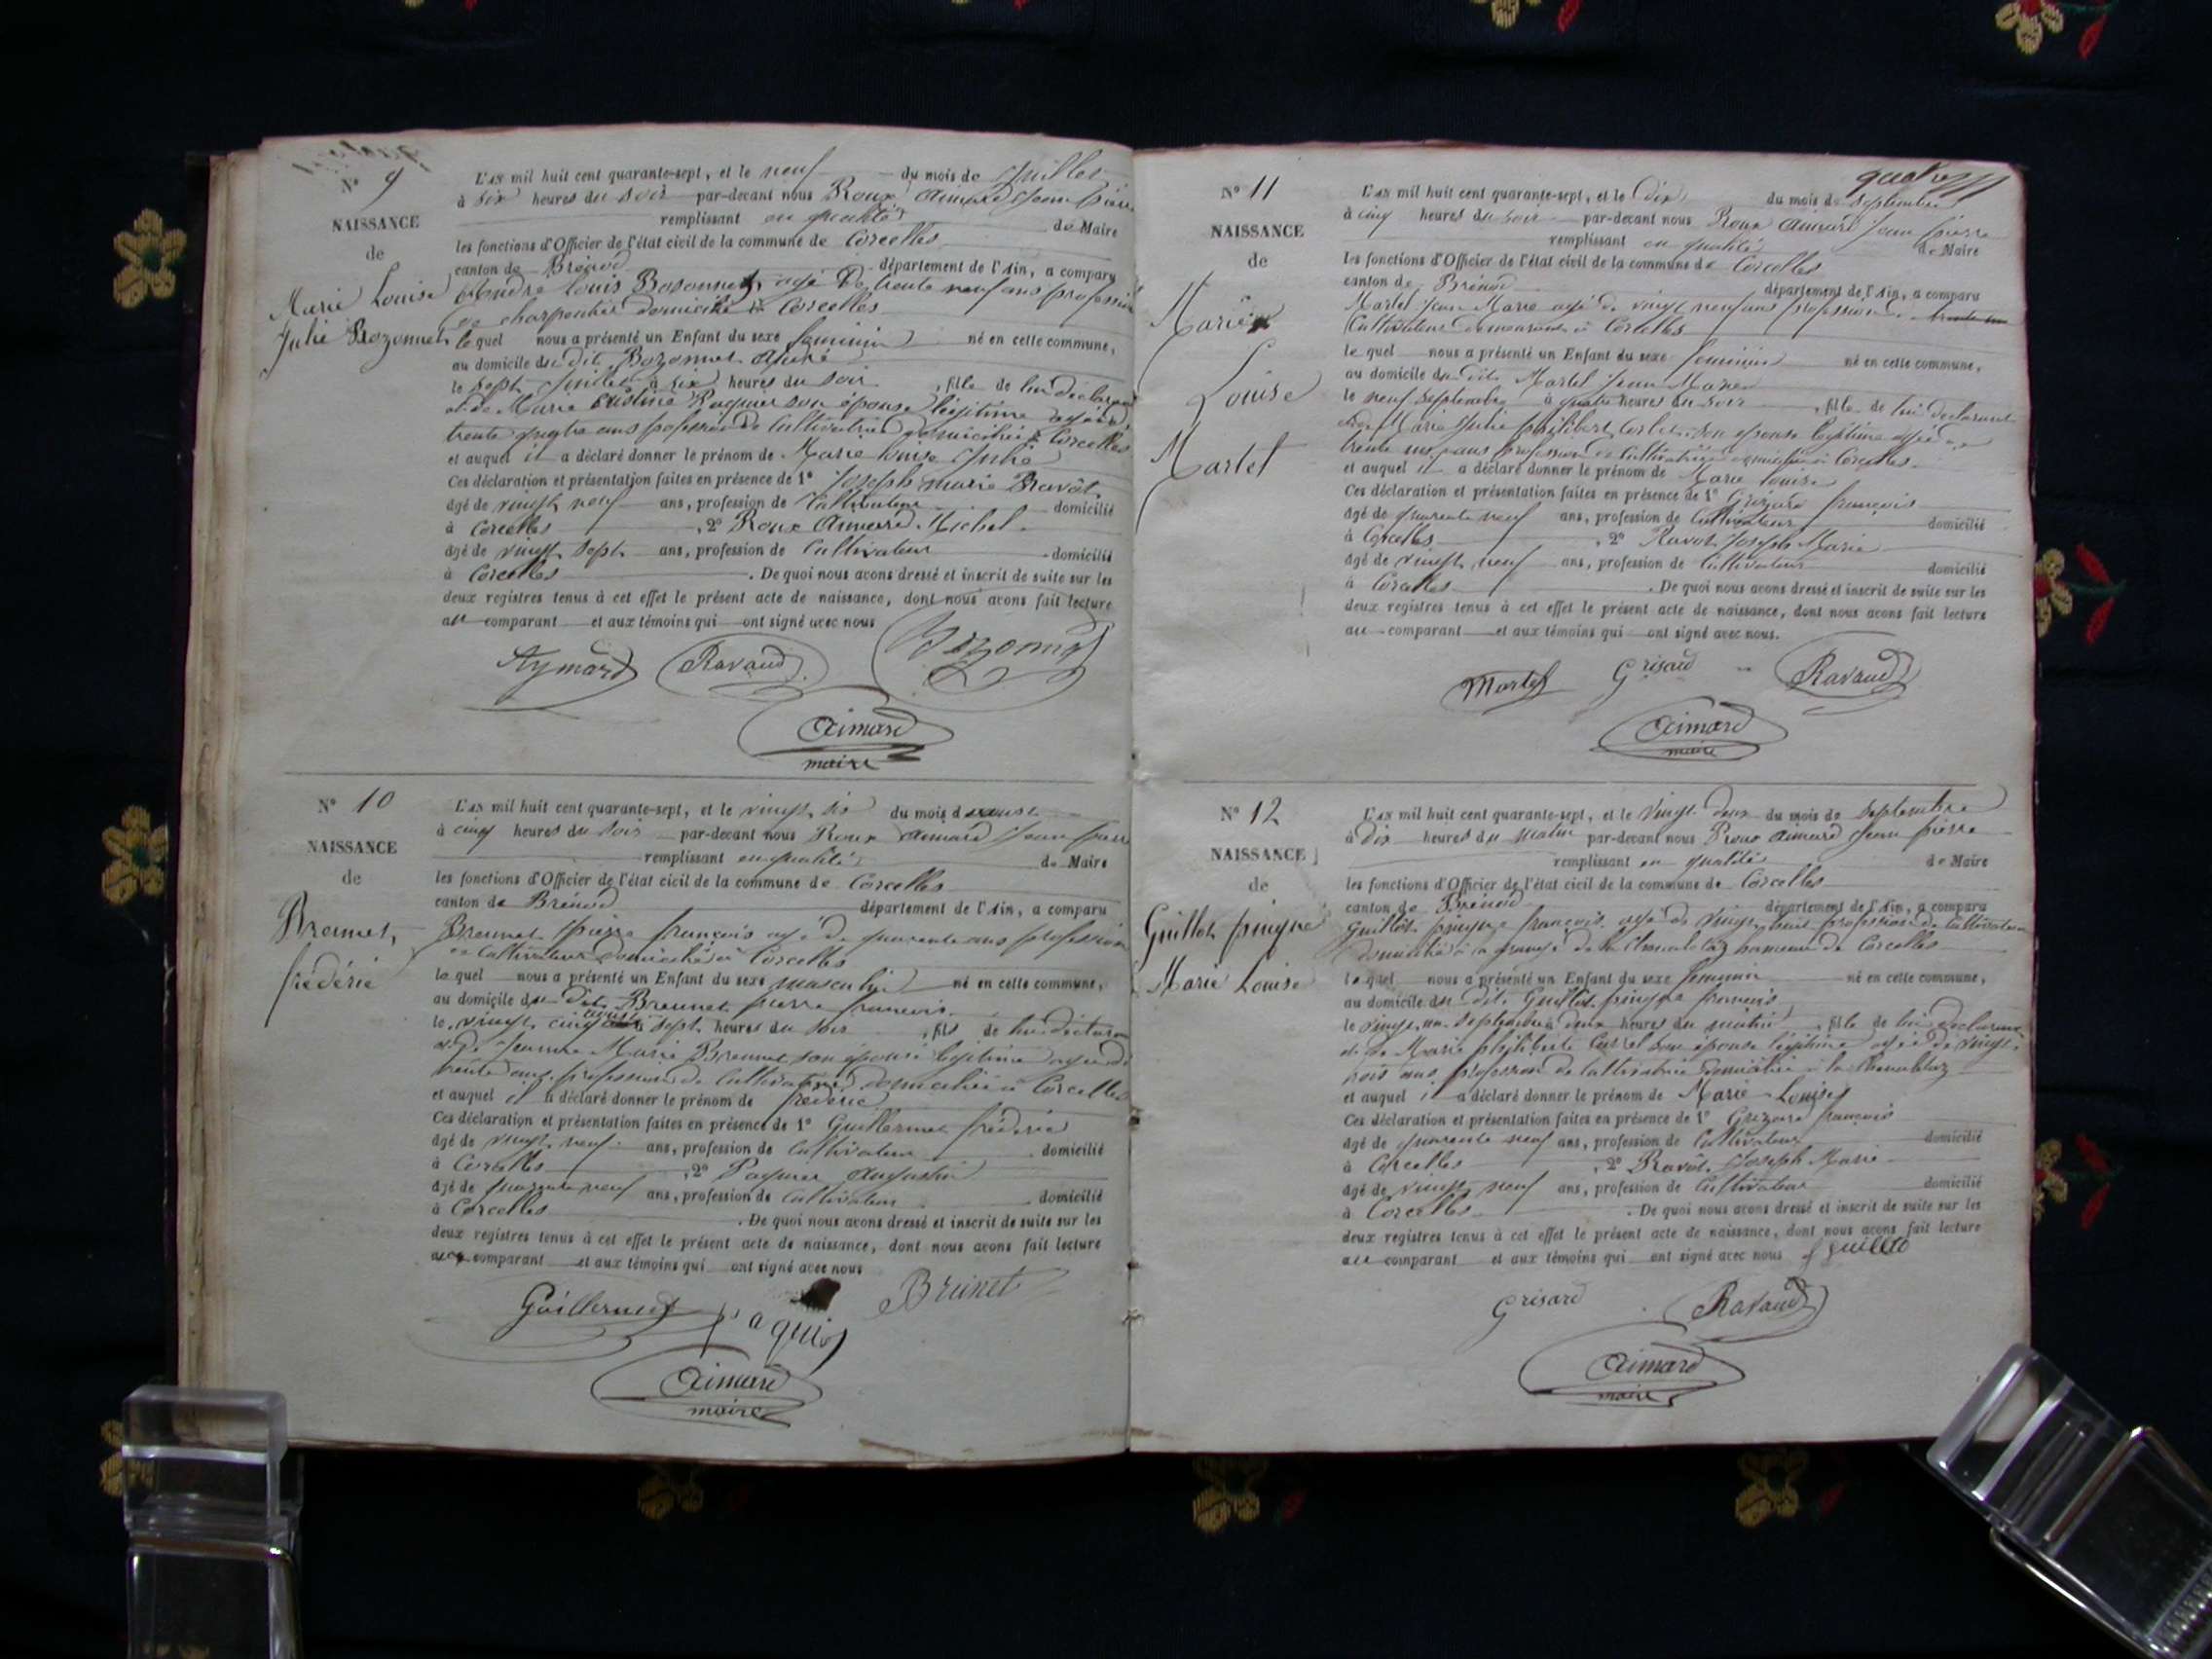 N° 9
NAISSANCE
de
Marie Louise
Julie Bozonnet
L'AN mil huit cent quarante-sept, et le neuf du mois de Juillet
à six heures du soir par-devant nous Roux Aimard Jean pierre
remplissant en qualité de Maire
les fonctions d'Officier de l'état civil de la commune de Corcelles
canton de Brénod département de l'Ain, a comparu
André Louis Bozonnet, agé de trente neuf ans profession
de charpentier domicilié à Corcelles
le quel nous a présenté un Enfant du sexe feminin né en cette commune,
au domicile du dit Bozonnet André
le sept Juillet à six heures du soir, fille de lui déclarant
et de Marie Paquier son épouse légitime agée de
trente quatre ans profession de Cultivatrice domiciliée à Corcelles
et auquel il a déclaré donner le prénom de Marie Louise Julie
Ces déclaration et présentation faites en présence de 1° Joseph Marie Ravôt
âgé de vingt neuf ans, profession de Cultivateur domicilié
à Corcelles, 2° Roux Aimard Michel
âgé de vingt sept ans, profession de Cultivateur domicilié
à Corcelles. De quoi nous avons dressé et inscrit de suite sur les
deux registres tenus à cet effet le présent acte de naissance, dont nous avons fait lecture
au comparant et aux témoins qui ont signé avec nous
Aymard Ravaud Bozonnet
Aimard
maire
N° 10
NAISSANCE
de
Brennet
frédéric
L'AN mil huit cent quarante-sept, et le vingt six du mois d'aoust
à cinq heures du soir par-devant nous Roux Aimard Jean pierre
remplissant en qualité de Maire
les fonctions d'Officier de l'état civil de la commune de Corcelles
canton de Brénod département de l'Ain, a comparu
Brennet Pierre françois agé de quarante ans profession
de Cultivateur domicilié à Corcelles
le quel nous a présenté un Enfant du sexe masculin né en cette commune,
au domicile du dit Brennet pierre francois
le vingt cinq aoust à sept heures du soir, fils de lui déclarant
et de Jeanne Marie Brennet son épouse légitime agée de
trente ans profession de Cultivatrice domiciliée à Corcelles
et auquel il a déclaré donner le prénom de frédéric
Ces déclaration et présentation faites en présence de 1° Guillermet frédéric
âgé de vingt neuf ans, profession de Cultivateur domicilié
à Corcelles, 2° Paquier Augustin
âgé de quarante neuf ans, profession de Cultivateur domicilié
à Corcelles. De quoi nous avons dressé et inscrit de suite sur les
deux registres tenus à cet effet le présent acte de naissance, dont nous avons fait lecture
aux comparant et aux témoins qui ont signé avec nous
Guillermet Paquier Brunet
Aimard
maire
quatre
N° 11
NAISSANCE
de
Marie
Louise
Martel
L'AN mil huit cent quarante-sept, et le Dix du mois de Septembre
à cinq heures du soir par-devant nous Roux Aimard Jean pierre
remplissant en qualité de Maire
les fonctions d'Officier de l'état civil de la commune de Corcelles
canton de Brénod département de l'Ain, a comparu
Martel Jean Marie agé de vingt neuf ans profession de
Cultivateur demeurant à Corcelles
le quel nous a présenté un Enfant du sexe feminin né en cette commune,
au domicile du dit Martel Jean Marie
le neuf Septembre à quatre heures du soir, fille de lui déclarant
et de Marie Julie philibert son épouse légitime agée de
trente ans profession de Cultivatrice domiciliée à Corcelles
et auquel il a déclaré donner le prénom de Marie Louise
Ces déclaration et présentation faites en présence de 1° Grizard françois
âgé de quarante neuf ans, profession de Cultivateur domicilié
à Corcelles, 2° Ravot Joseph Marie
âgé de vingt neuf ans, profession de Cultivateur domicilié
à Corcelles. De quoi nous avons dressé et inscrit de suite sur les
deux registres tenus à cet effet le présent acte de naissance, dont nous avons fait lecture
au comparant et aux témoins qui ont signé avec nous.
Martel Grisard Ravaud
Aimard
maire
N° 12
NAISSANCE
de
Guillot pingue
Marie Louise
L'AN mil huit cent quarante-sept, et le Vingt deux du mois de Septembre
à dix heures du matin par-devant nous Roux Aimard Jean pierre
remplissant en qualité de Maire
les fonctions d'Officier de l'état civil de la commune de Corcelles
canton de Brénod département de l'Ain, a comparu
Guillot pingue françois agé de vingt huit profession de Cultivateur
domicilié à la grange de la hameau de Corcelles
le quel nous a présenté un Enfant du sexe feminin né en cette commune,
au domicile du dit Guillot pingue francois
le vingt un Septembre à deux heures du matin, fille de lui déclarant
et de Marie philiberte Carrel son épouse légitime agée de vingt
trois ans profession de Cultivatrice domiciliée à la
et auquel il a déclaré donner le prénom de Marie Louise
Ces déclaration et présentation faites en présence de 1° Grizard françois
âgé de quarante neuf ans, profession de Cultivateur domicilié
à Corcelles, 2° Ravôt Joseph Marie
âgé de vingt neuf ans, profession de Cultivateur domicilié
à Corcelles. De quoi nous avons dressé et inscrit de suite sur les
deux registres tenus à cet effet le présent acte de naissance, dont nous avons fait lecture
au comparant et aux témoins qui ont signé avec nous f guillot
Grisard Ravaud
Aimard
maire